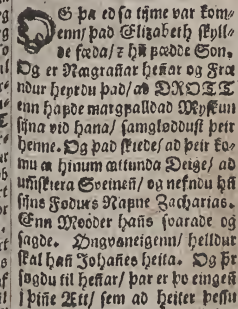 OG þa ed sa tijme var kom⸗
enn/ þad Elizabeth skyll⸗
de fæda/ ꝛ hũ þædde Son.
Og er Nægrañar heñar og Fræ
ndur heyrdu þad/ ad DROTT
enn hafde margfalldad Myskun
sijna vid hana/ samglóddust þeir
henne. Og þad skiede/ ad þeir ko⸗
mu a hinum attunda Deige/ ad
umskiera Sveineñ/ og nefndu hñ
sijns Fodurs Nafne Zacharias.
Enn Mooder hañs svarade og
sagde. Øngvaneigenn/ helldur
skal hañ Johañes heita. Og þr
sogdu til heñar/ þar er þo eingeñ
i þiñe Ætt/ sem ad heiter þessu